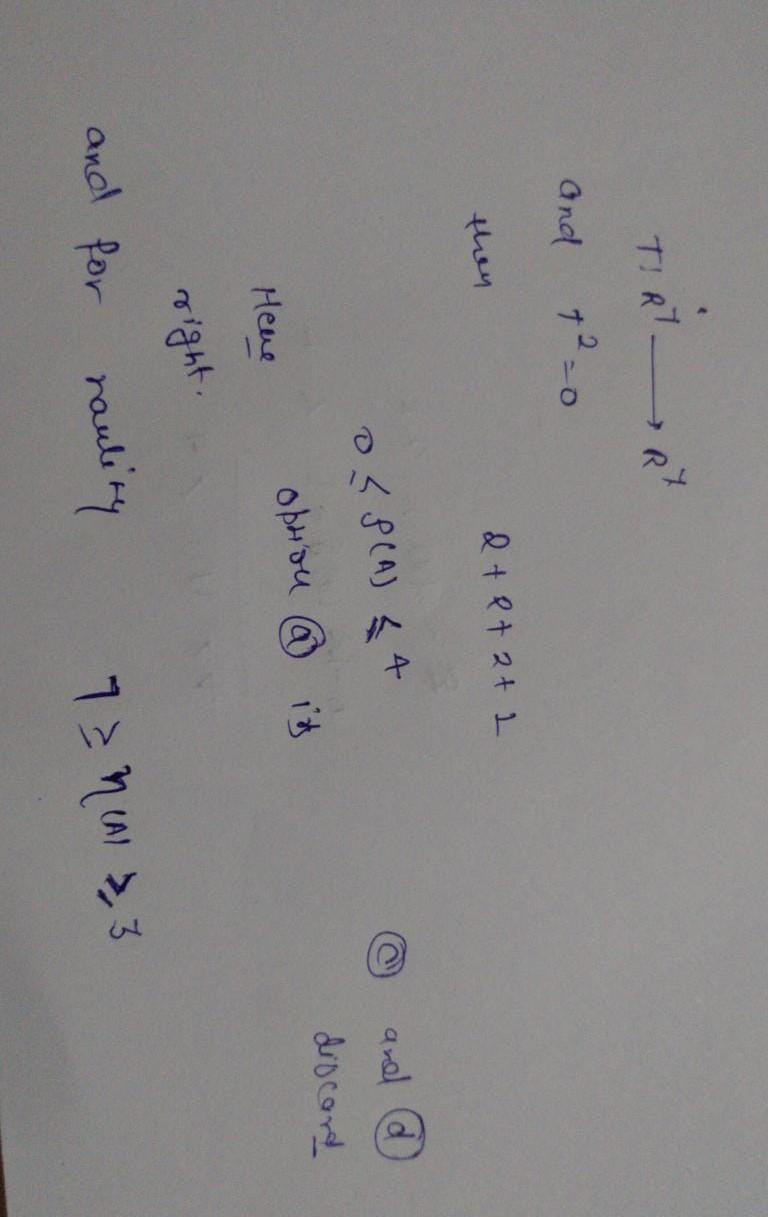 T: R⁷ → R⁷
and T² = 0
then 2 + 2 + 2 + 1
0 ≤ ρ(A) ≤ 4
© and ⓓ discard
Hence option ⓐ is
right.
and for naulity 7 ≥ η(A) ≥ 3